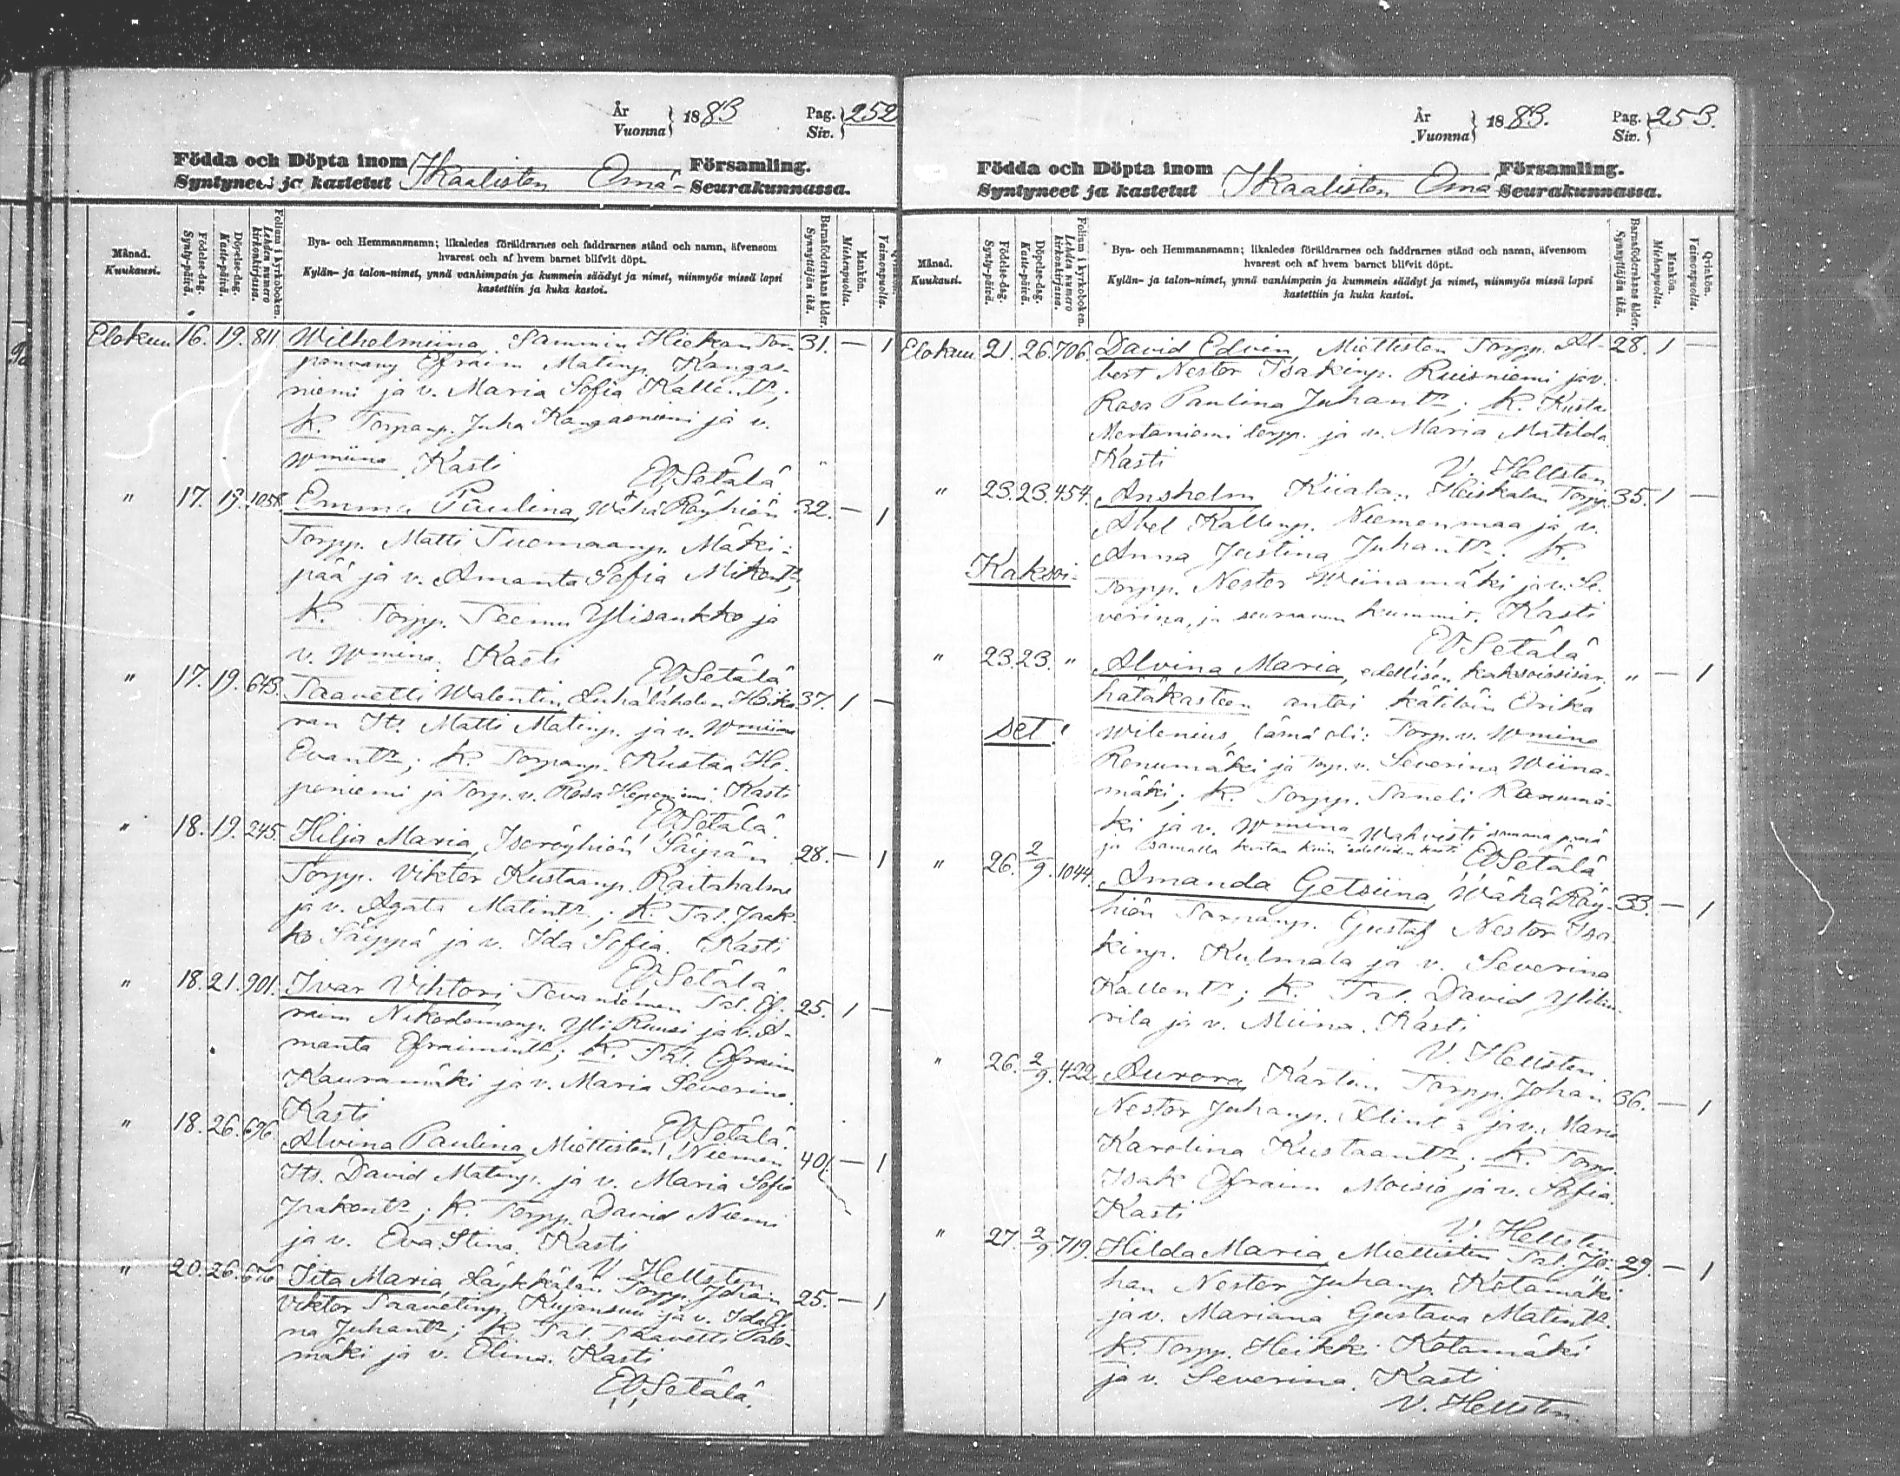 År
Vuonna } 1883
Pag.
Siv. } 252
Födda och Döpta inom
Syntyneet ja kastetut Ikaalisten Emä- Församling.
Seurakunnassa.
Månad.
Kuukausi.
Födelse-dag.
Synty-päivä.
Döpelse-dag.
Kaste-päivä.
Folium i kyrkoboken.
Lehden numero kirkonkirjassa.
Bya- och Hemmansnamn; likaledes föräldrarnes och faddrarnes stånd och namn, äfvensom
hvarest och af hvem barnet blifvit döpt.
Kylän- ja talon-nimet, ynnä vanhimpain ja kummein säädyt ja nimet, niinmyös missä lapsi
kastettiin ja kuka kastoi.
Barnaföderskans ålder.
Synnyttäjän ikä.
Mankön.
Miehenpuolia.
Vaimonpuolia.
Elokuu 16. 19. 811 Wilhelmiina, Sammin Hiekan Tor- 31. — 1
panvany Efraim Matinp. Kangas-
niemi ja v. Maria Sofia Kallentr;
K. Torpanp. Juha Kangasniemi ja v.
Wmiina Kasti
EV Setälä
" 17. 19. 1058. Emma Paulina, Wähä Röyhiön 32. — 1
Torpp. Matti Tuomaanp. Mäki-
pää ja v. Amanta Sofia Mikontr;
K. Torpp. Teemu Ylisankko ja
v. Wmina. Kasti
EV Setälä
" 17. 19. 643. Taavetti Walentin, Luhalahden Heika 37. 1 —
ran Its. Matti Matinp. ja v. Wmiina
Evantr; K. Torpanp. Kustaa He-
poniemi ja Torp. v. Rosa Heponiemi. Kasti
EV Setälä.
" 18. 19. 245. Hilja Maria, Isoröyhiön Säipän 28. — 1
Torpp. Viktor Kustaanp. Raitahalme
ja v. Agata Matintr; K. Tal. Jaak-
ko Säippä ja v. Ida Sofia. Kasti
EV Setälä
" 18. 21. 901. Ivar Vihtori, Tevaniemen Tal. Ef- 25. 1 —
raim Nikodemonp. Yli Ruusi ja v. A-
manta Efraimintr; K. Tal. Efraim
Kauramäki ja v. Maria Severina.
Kasti EV Setälä.
" 18. 26. 696. Alvina Paulina, Miettisten Niemen 40. — 1
Its. David Matinp. ja v. Maria Sofia
Jaakontr; K. Torpp. David Niemi
ja v. Eva Stina. Kasti
V. Hellsten
" 20. 26. 676 Iita Maria, Läykkälän Torpp. Johan 25. — 1
Viktor Taavetinp. Kujansuu ja v. Ida El-
na Juhantr; K. Tal. Taavetti Palo-
mäki ja v. Elina. Kasti
EV Setälä.
År
Vuonna } 1883.
Pag.
Siv. } 253.
Födda och Döpta inom
Syntyneet ja kastetut Ikaalisten Emä Församling.
Seurakunnassa.
Månad.
Kuukausi.
Födelse-dag.
Synty-päivä.
Döpelse-dag.
Kaste-päivä.
Folium i kyrkoboken.
Lehden numero kirkonkirjassa.
Bya- och Hemmansnamn; likaledes föräldrarnes och faddrarnes stånd och namn, äfvensom
hvarest och af hvem barnet blifvit döpt.
Kylän- ja talon-nimet, ynnä vanhimpain ja kummein säädyt ja nimet, niinmyös missä lapsi
kastettiin ja kuka kastoi.
Barnaföderskans ålder.
Synnyttäjän ikä.
Mankön.
Miehenpuolia.
Qvinkön.
Vaimonpuolia.
Elokuu 21. 26. 706. David Edvin, Miettisten Torpp. Al- 28. 1 —
bert Nestor Isakinp. Ruisniemi ja v.
Rosa Paulina Juhantr; K. Kusta
Mertaniemi torpp. ja v. Maria Matilda
Kasti V. Hellsten.
" 23. 23. 454. Anshelm, Kiialan Heiskalan Torpp. 35. 1 —
Abel Kallenp. Niemenmaa ja v.
Anna Justina Juhantr. K.
Kaksoi-
Torpp. Nestor Wiinamäki ja v. Se-
verina, ja seuraavan kummit. Kasti
EV Setälä
" 23. 23. " Alvina Maria, edellisen kaksoissisar, " — 1
hätäkasteen antoi kätilöin Erika
set!
Wilenius, läsnä oli: Torp. v. Wmina
Ranumäki ja Torp. v. Severina Wiina-
mäki; K. Torpp. Taneli Ranumä-
ki ja v. Wmina. Wahvisti samana päivä
ja samalla kertaa kuin edellisen kasti EV Setälä
" 26. 2/9. 1044. Amanda Getsiina, Wähä Röy- 33. — 1
hiön Torpanp. Gustaf Nestor Isa-
kinp. Kulmala ja v. Severina
Kallentr; K. Tal. David Ylikiu-
rila ja v. Miina. Kasti
V. Hellsten.
" 26. 2/9. 422. Aurora, Kartin Torpp. Johan 36. — 1
Nestor Juhanp. Flint ja v. Maria
Karolina Kustaantr; K. Torpp.
Isak Efraim Moisio ja v. Sofia.
Kasti V. Hellsten
" 27. 2/9. 719. Hilda Maria, Miettisten Tal. Jo- 29. — 1
han Nestor Juhanp. Kotamäki
ja v. Mariana Gustava Matintr.
K. Torpp. Heikki Kotamäki
ja v. Severina. Kasti
V. Hellsten.